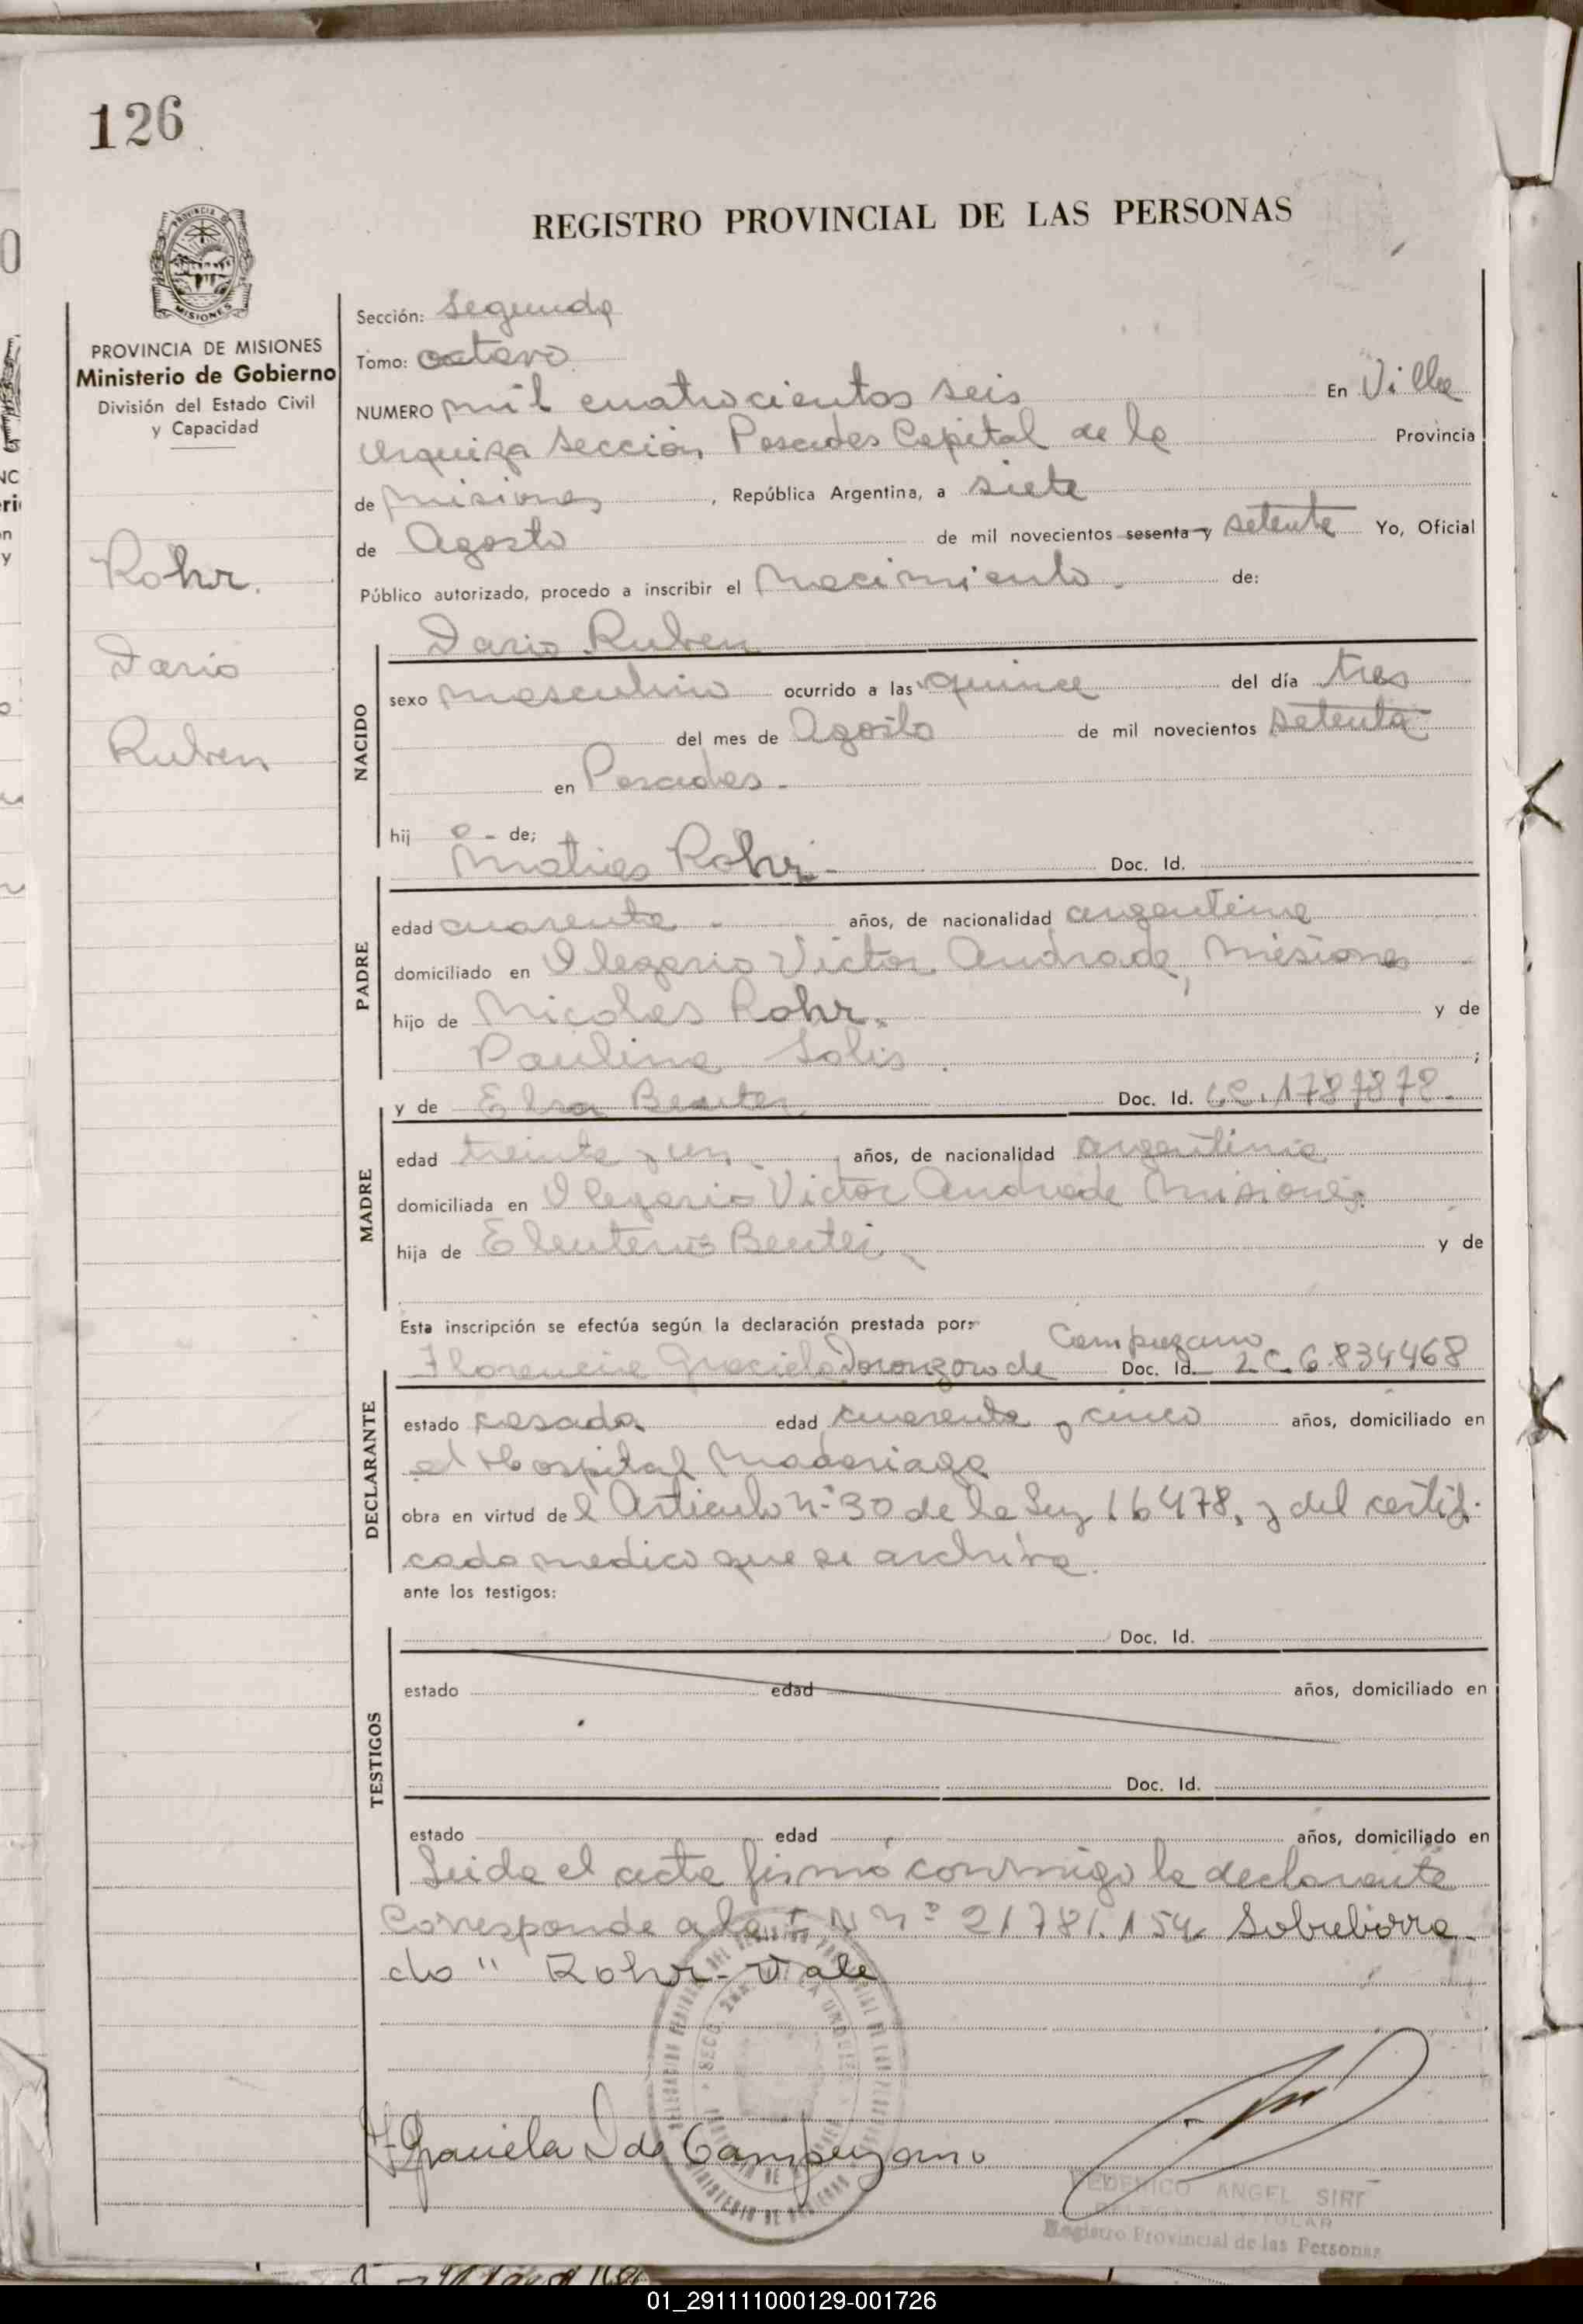 126
REGISTRO PROVINCIAL DE LAS PERSONAS
PROVINCIA DE MISIONES
Ministerio de Gobierno
División del Estado Civil
y Capacidad
Rohr.
Dario
Ruben
Sección: segunda
Tomo: octavo
NUMERO mil cuatrocientos seis En Villa
Urquiza sección, Posadas Capital de la Provincia
de Misiones, República Argentina, a siete
de Agosto de mil novecientos sesenta y setenta Yo, Oficial
Público autorizado, procedo a inscribir el Nacimiento. de:
Dario Ruben
NACIDO
sexo masculino ocurrido a las quince del día tres
del mes de Agosto de mil novecientos setenta
en Posadas.-
hij o - de;
Matias Rohr.- Doc. Id.
PADRE
edad cuarenta.- años, de nacionalidad argentina
domiciliado en Olegario Victor Andrade, Misiones
hijo de Nicolas Rohr. y de
Paulina Solis. ;
MADRE
y de Elsa Benitez Doc. Id. 1787878.
edad treinta y un. años, de nacionalidad argentina
domiciliada en Olegario Victor Andrade Misiones.
hija de Eleuterio y de
Esta inscripción se efectúa según la declaración prestada por: Campuzano
Florencia Graciela Doronzoro de Doc. Id. LC. 6.834468
DECLARANTE
estado casada edad cuarenta y cinco años, domiciliado en
el Hospital Madariaga
obra en virtud de l Articulo n° 30 de la Ley 16478, y del certifi-
cado medico que se archiva.
ante los testigos:
TESTIGOS
Doc. Id.
estado edad años, domiciliado en
Doc. Id.
estado edad años, domiciliado en
Leida el acta firmó conmigo la declarante
Corresponde a la N n° 21781.154 Sobreborra-
do " Rohr- Vale
Graciela D de Campuzano
FEDERICO ANGEL SIRI
DELEGADO TITULAR
Registro Provincial de las Personas
01_291111000129-001726